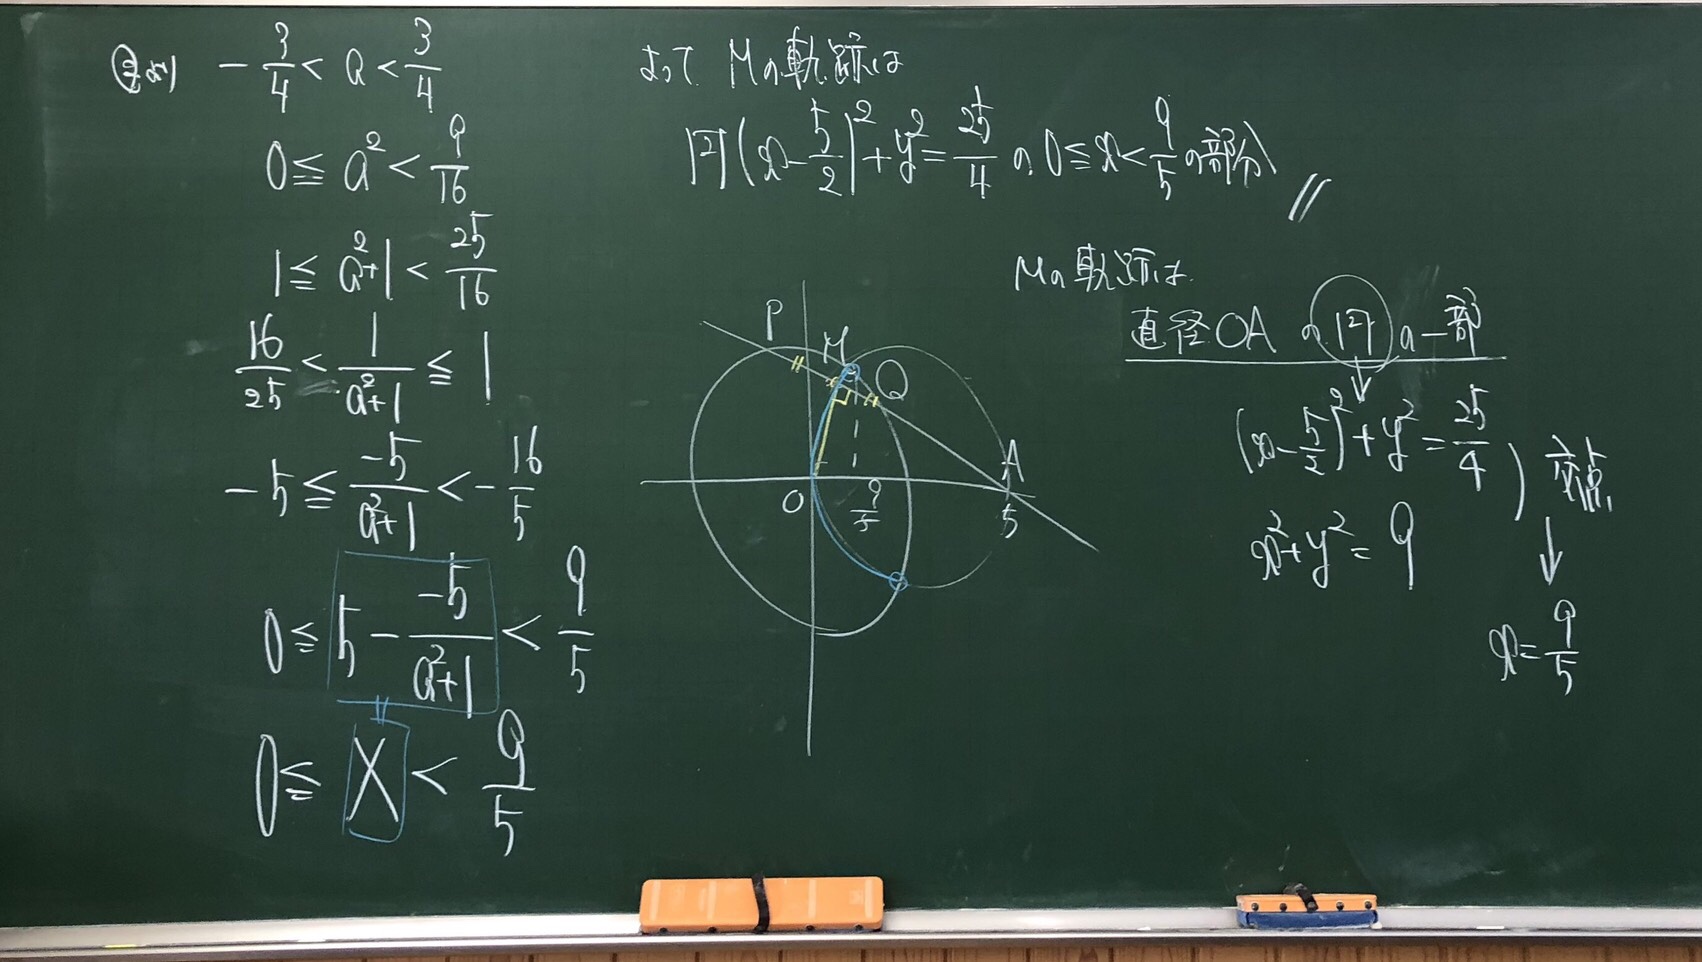 ②より -3/4 < a < 3/4
0 ≦ a² < 9/16
1 ≦ a²+1 < 25/16
16/25 < 1/(a²+1) ≦ 1
-5 ≦ -5/(a²+1) < -16/5
0 ≦ 5 - -5/(a²+1) < 9/5
0 ≦ X < 9/5
よって Mの軌跡は
円(x-5/2)²+y²=25/4 の 0≦x<9/5の部分
Mの軌跡は
直径OA の 円 の一部
(x-5/2)²+y²=25/4
x²+y²=9
交点
x=9/5
P
M
Q
A
O
9/5
5